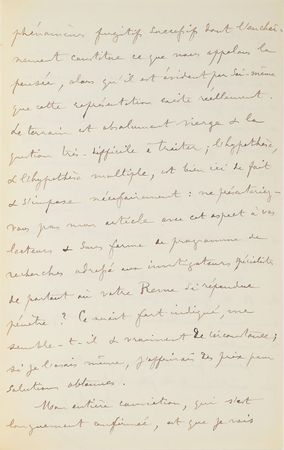 phénomènes fugitifs successifs dont l'enchaî-
nement constitue ce que nous appelons la
pensée, alors qu'il est évident par soi-même
que cette représentation existe réellement.
Le terrain est absolument vierge & la
question très difficile à traiter ; l'hypothèse,
& l'hypothèse multiple, est bien ici de fait
& s'impose nécessairement : ne présenteriez-
vous pas mon article avec cet aspect à vos
lecteurs & sous forme de programme de
recherches adressé aux investigateurs
de partout où votre Revue si répandue
pénètre ? Ce serait fort indiqué, me
semble-t-il & vraiment de circonstance ;
si je l'osais même, j'offrirais des prix pour
solutions obtenues.
Mon entière conviction, qui s'est
longuement confirmée, est que je vais